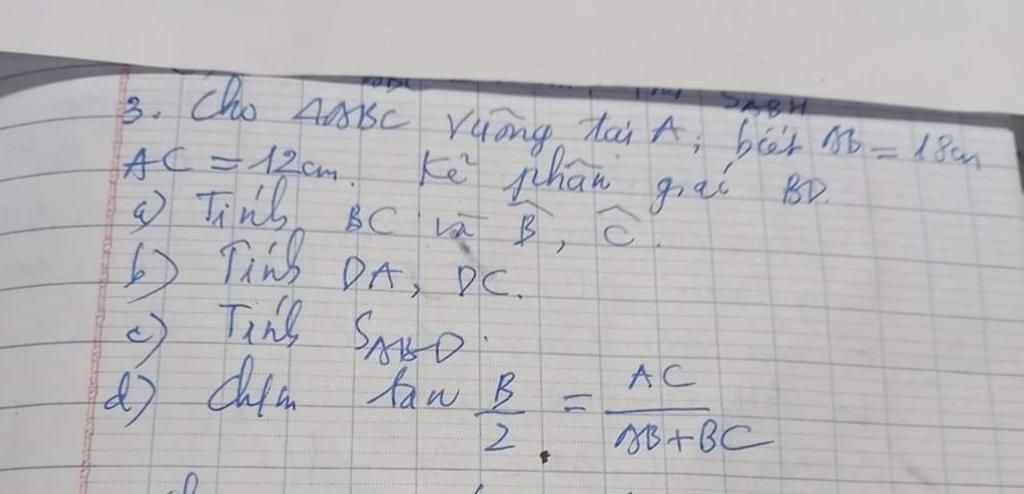 S_ABH
3. Cho ΔABC vuông tại A; biết AB = 18cm
AC = 12cm. Kẻ phân giác BD.
a) Tính BC và B̂, Ĉ.
b) Tính DA, DC.
c) Tính S_ABD.
d) Chứm tan B/2 = AC/(AB+BC)